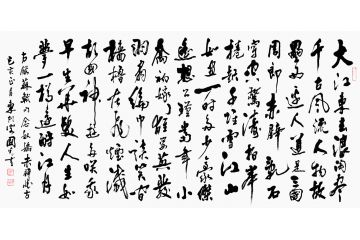 大江東去浪淘盡
千古風流人物故
壘西邊人道是三國
周郎赤壁亂石
穿空驚濤拍岸
捲起千堆雪江山
如畫一時多少豪傑
遙想公瑾當年小
喬初嫁了雄姿英發
羽扇綸巾談笑間
檣櫓灰飛煙滅
故國神遊多情笑我
早生華髮人生如
夢一樽還酹江月
蘇軾念奴嬌赤壁懷古